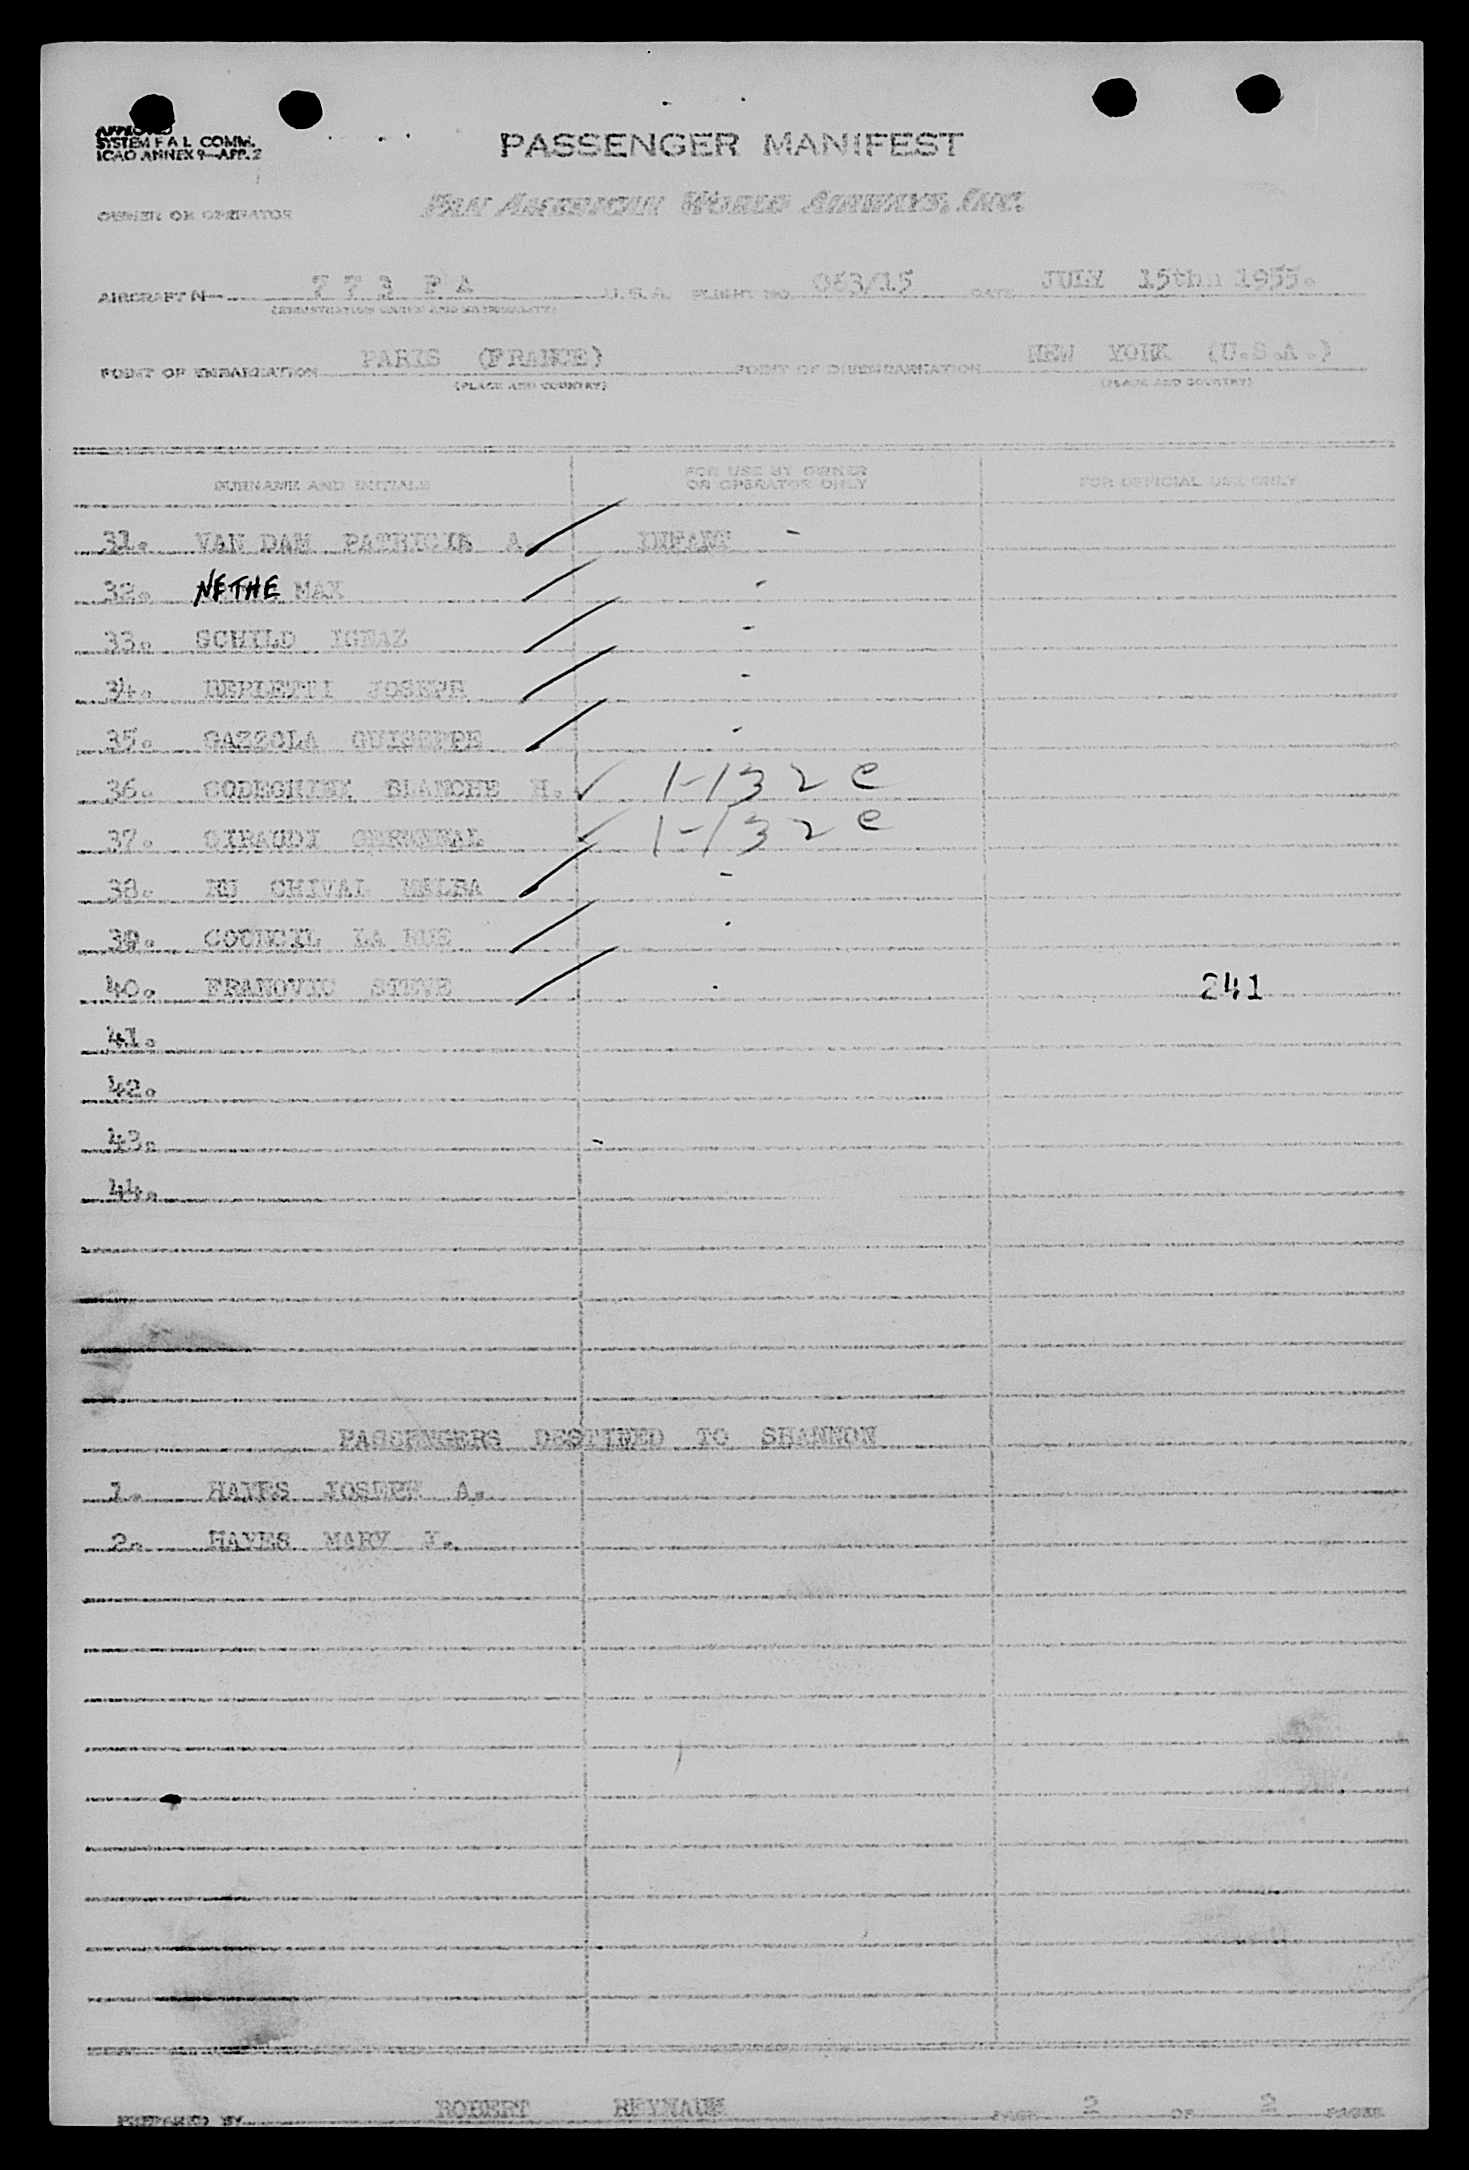 APPROVED
SYSTEM F A L COMM.
ICAO ANNEX 9—APP. 2
PASSENGER MANIFEST
OWNER OR OPERATOR PAN AMERICAN WORLD AIRWAYS, INC.
AIRCRAFT N— 7 7 3 P A U.S.A. FLIGHT NO. 063/15 DATE JULY 15th 1955.
(REGISTRATION MARKS AND NATIONALITY)
POINT OF EMBARKATION PARIS (FRANCE) POINT OF DISEMBARKATION NEW YORK (U.S.A.)
(PLACE AND COUNTRY) (PLACE AND COUNTRY)
SURNAME AND INITIALS FOR USE BY OWNER OR OPERATOR ONLY FOR OFFICIAL USE ONLY
31. VAN DAM PATRICIA A. INFANT -
32. NETHE MAX -
33. SCHILD IGNAZ -
34. JOSEPH -
35. GAZZOLA GUISEPPE -
36. BLANCHE H. ✓ 1-132 e
37. GIRAUDI ✓ 1-132 e
38. CHIVAL MALBA -
39. COUNCIL LA RUE -
40. FRANOVIC STEVE - 241
41.
42.
43. -
44.
PASSENGERS DESTINED TO SHANNON
1. HAYES JOSEPH A.
2. HAYES MARY J.
PREPARED BY ROBERT REYNAUD PAGE 2 OF 2 PAGES